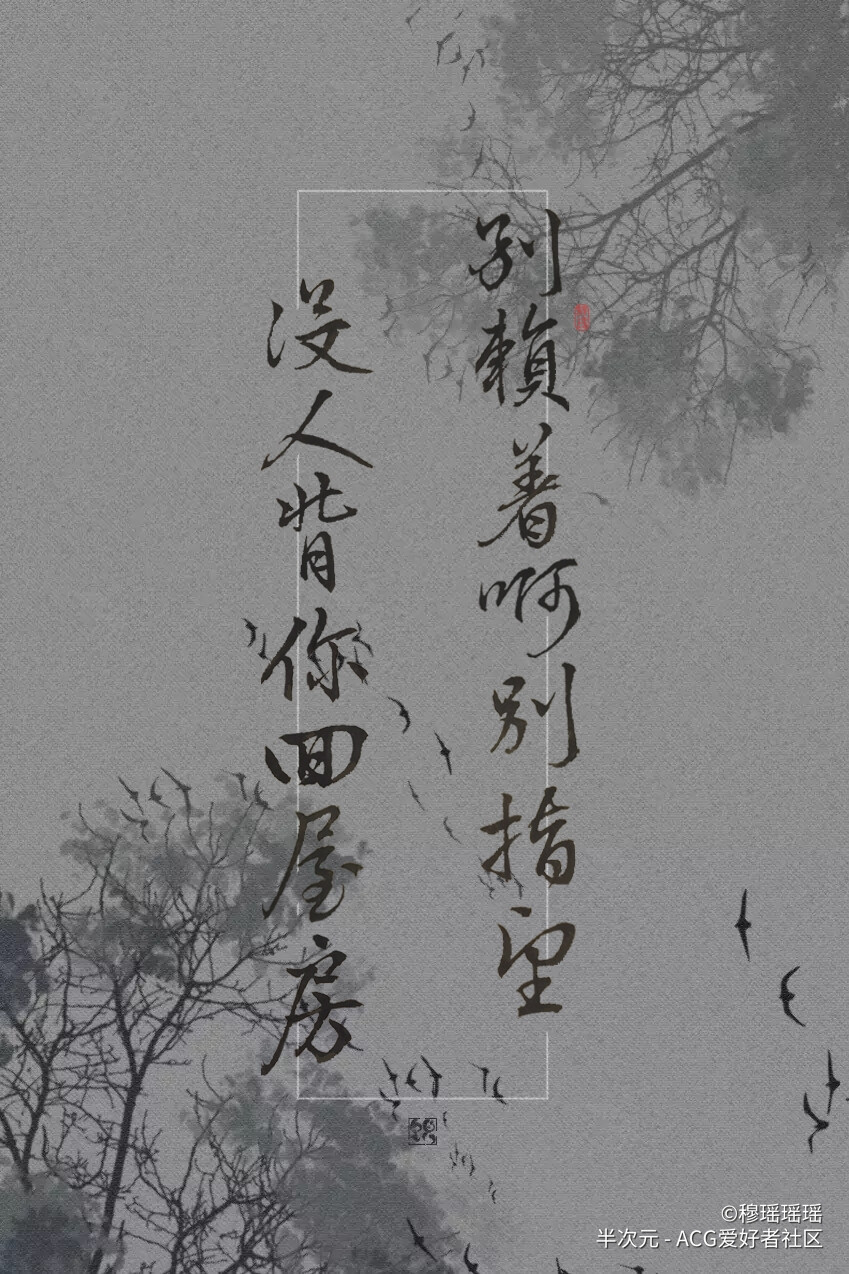 别賴着啊别指望
没人背你回屋房
©穆瑶瑶瑶
半次元 - ACG爱好者社区